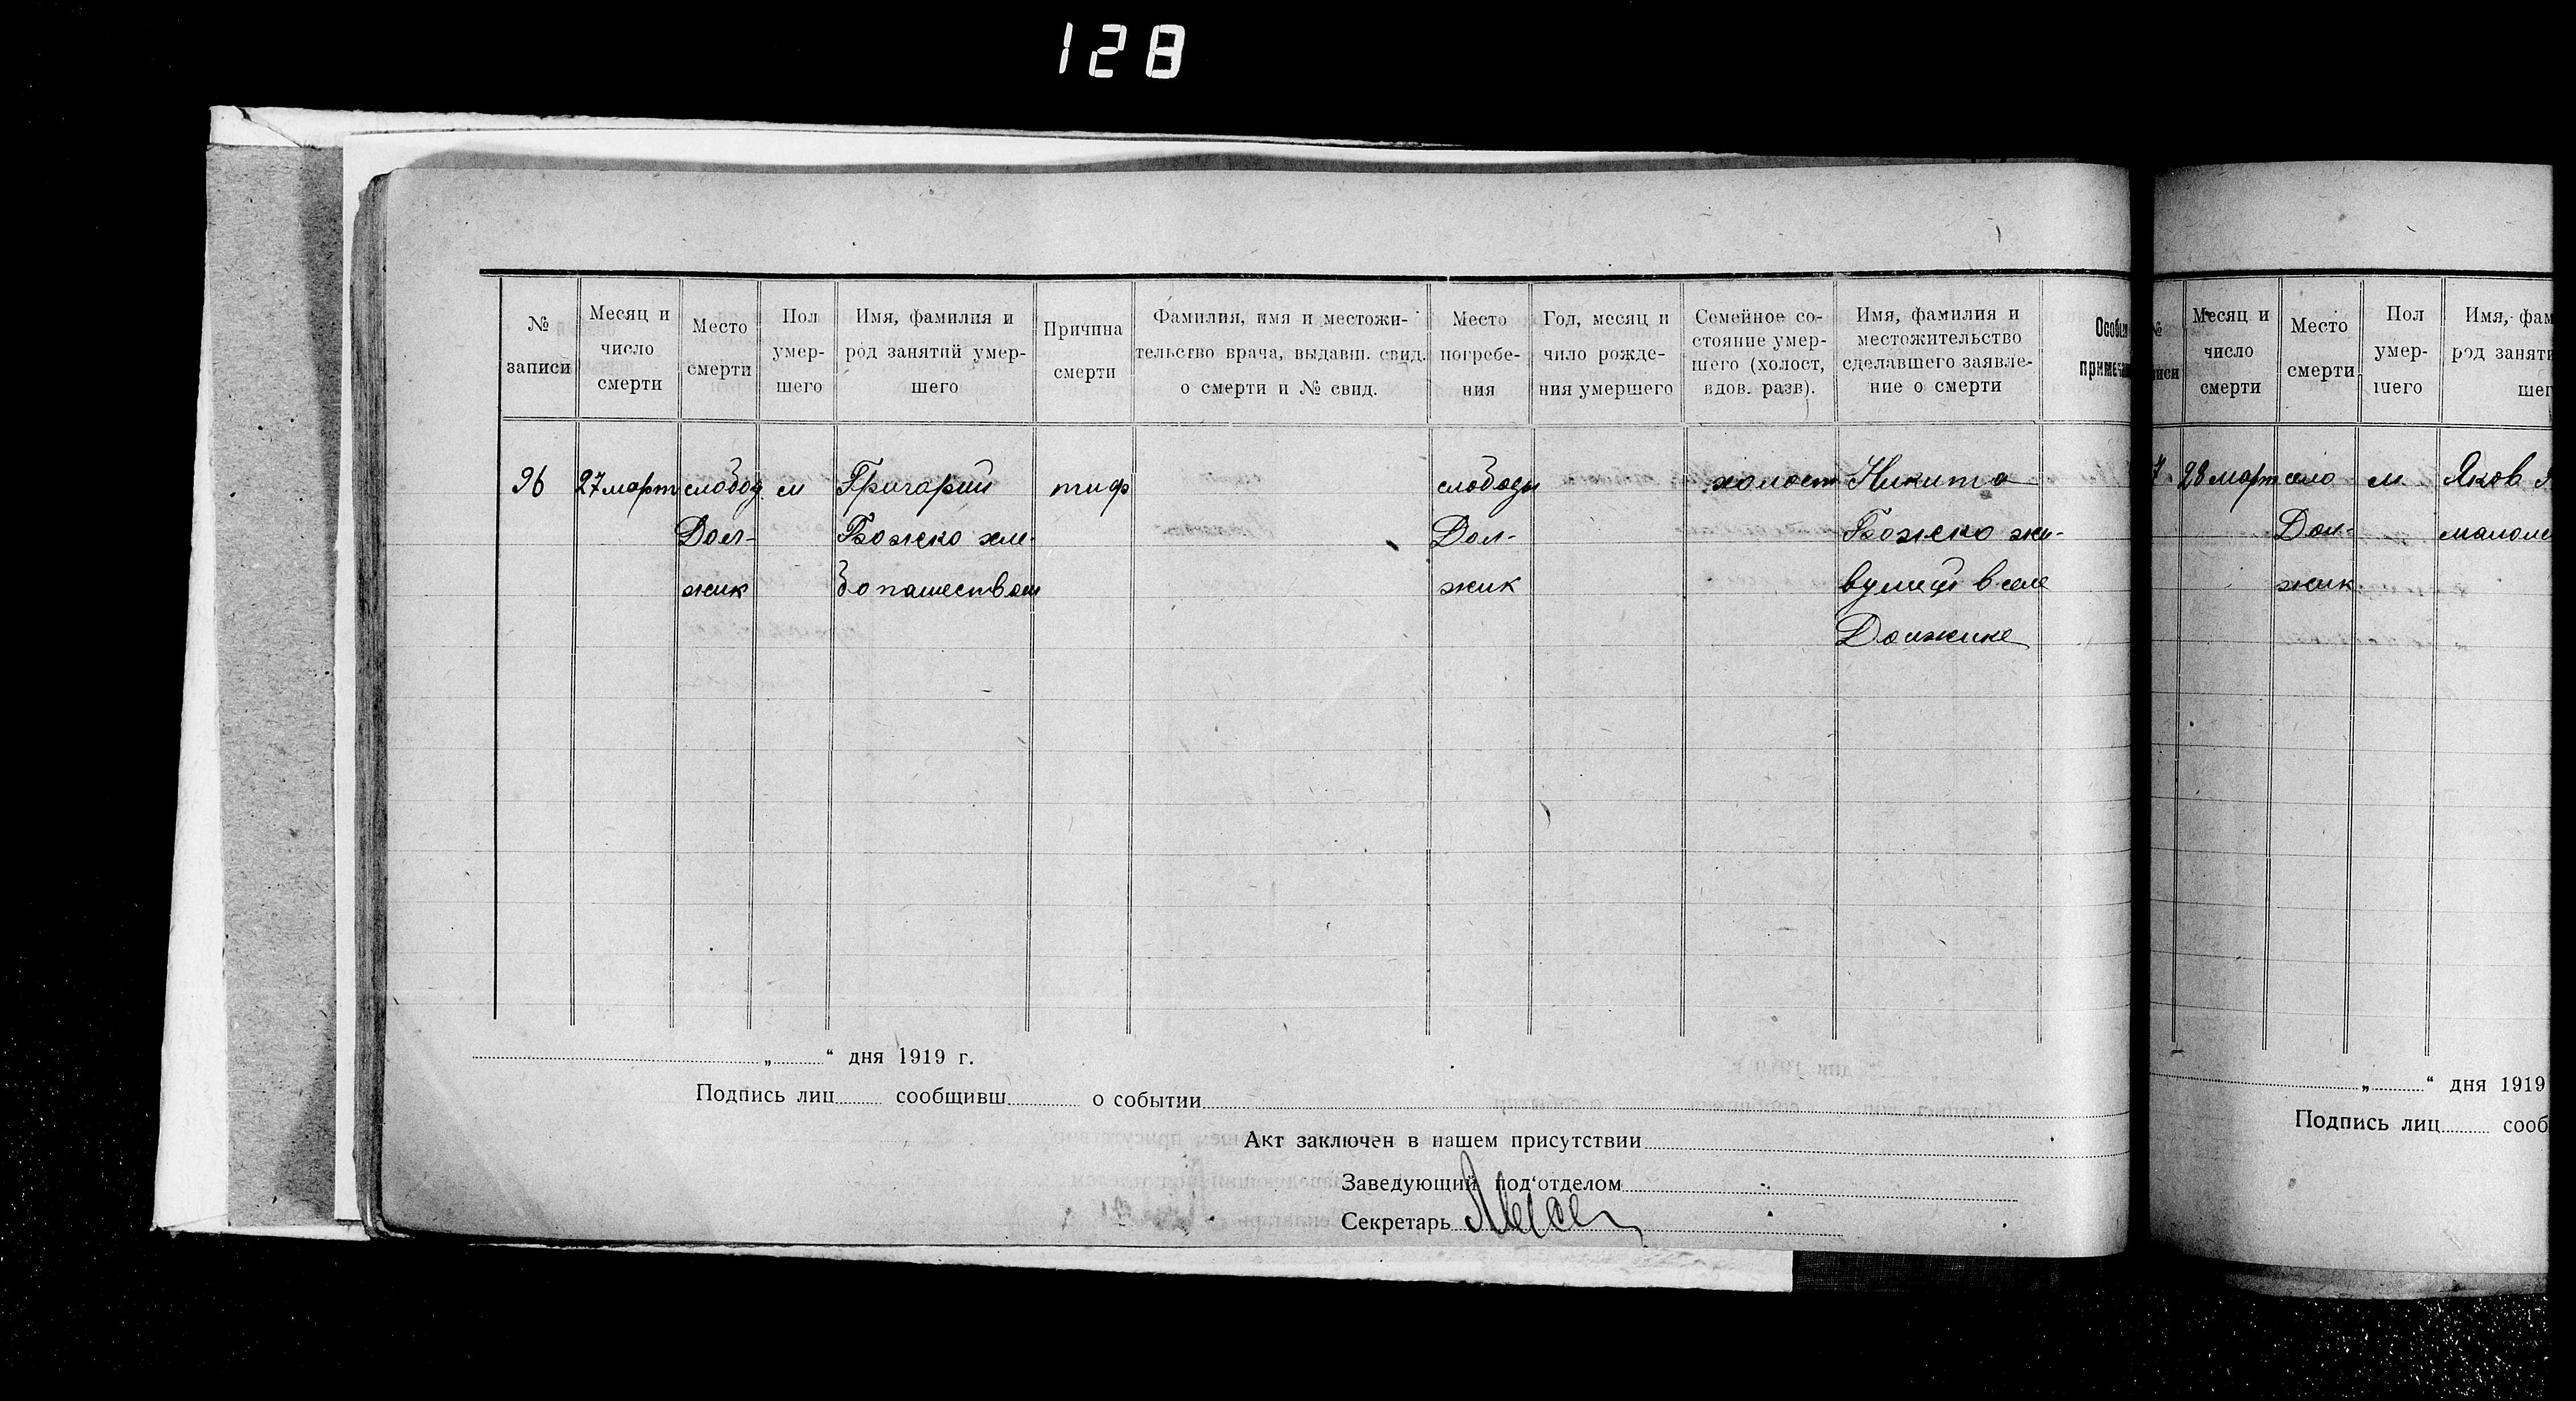 128
№ записи
Месяц и число смерти
Место смерти
Пол умер-шего
Имя, фамилия и род занятий умер-шего
Причина смерти
Фамилия, имя и местожи-тельство врача, выдавш. свид. о смерти и № свид.
Место погребе-ния
Год, месяц и чило рожде-ния умершего
Семейное со-стояние умер-шего (холост, вдов. разв).
Имя, фамилия и местожительство сделавшего заявле-ние о смерти
96
27 март
слобод
Дол-
жик
м
Григорий
Божско хле-
бопашеством
тиф
слободы
Дол-
жик
холост
Никита
Божско жи-
вущий в селе
Должике
„ “ дня 1919 г.
Подпись лиц сообщивш о событии
Акт заключен в нашем присутствии
Заведующий под'отделом
Секретарь
Месяц и число смерти
Место смерти
Пол умер-шего
28 март
село
Дол-
жик
м
Яков
„ “ дня 1919
Подпись лиц сооб